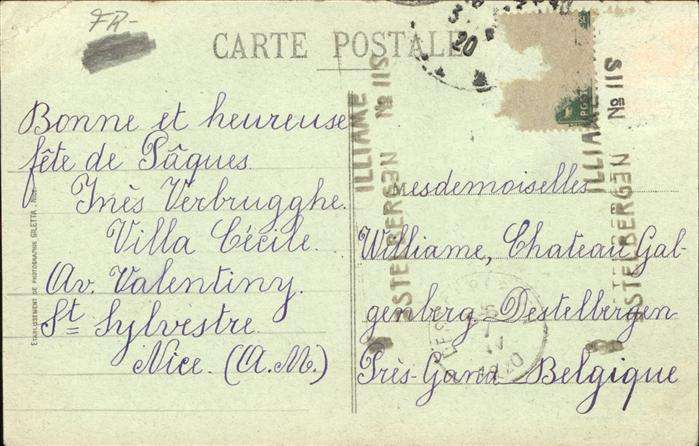 FR-
CARTE POSTALE
3
20
Bonne et heureuse
fête de Pâques
Inès Verbrugghe.
Villa Cécile.
Av. Valentiny.
St Sylvestre
Nice. (A.M.)
Mesdemoiselles
Williame, Chateau Gal-
genberg Destelbergen
Près-Gand Belgique
ILLIAME
DESTELBERGEN No 115
ILLIAME
DESTELBERGEN No 115
POST
1920
ETABLISSEMENT DE PHOTOGRAPHIE GILETTA